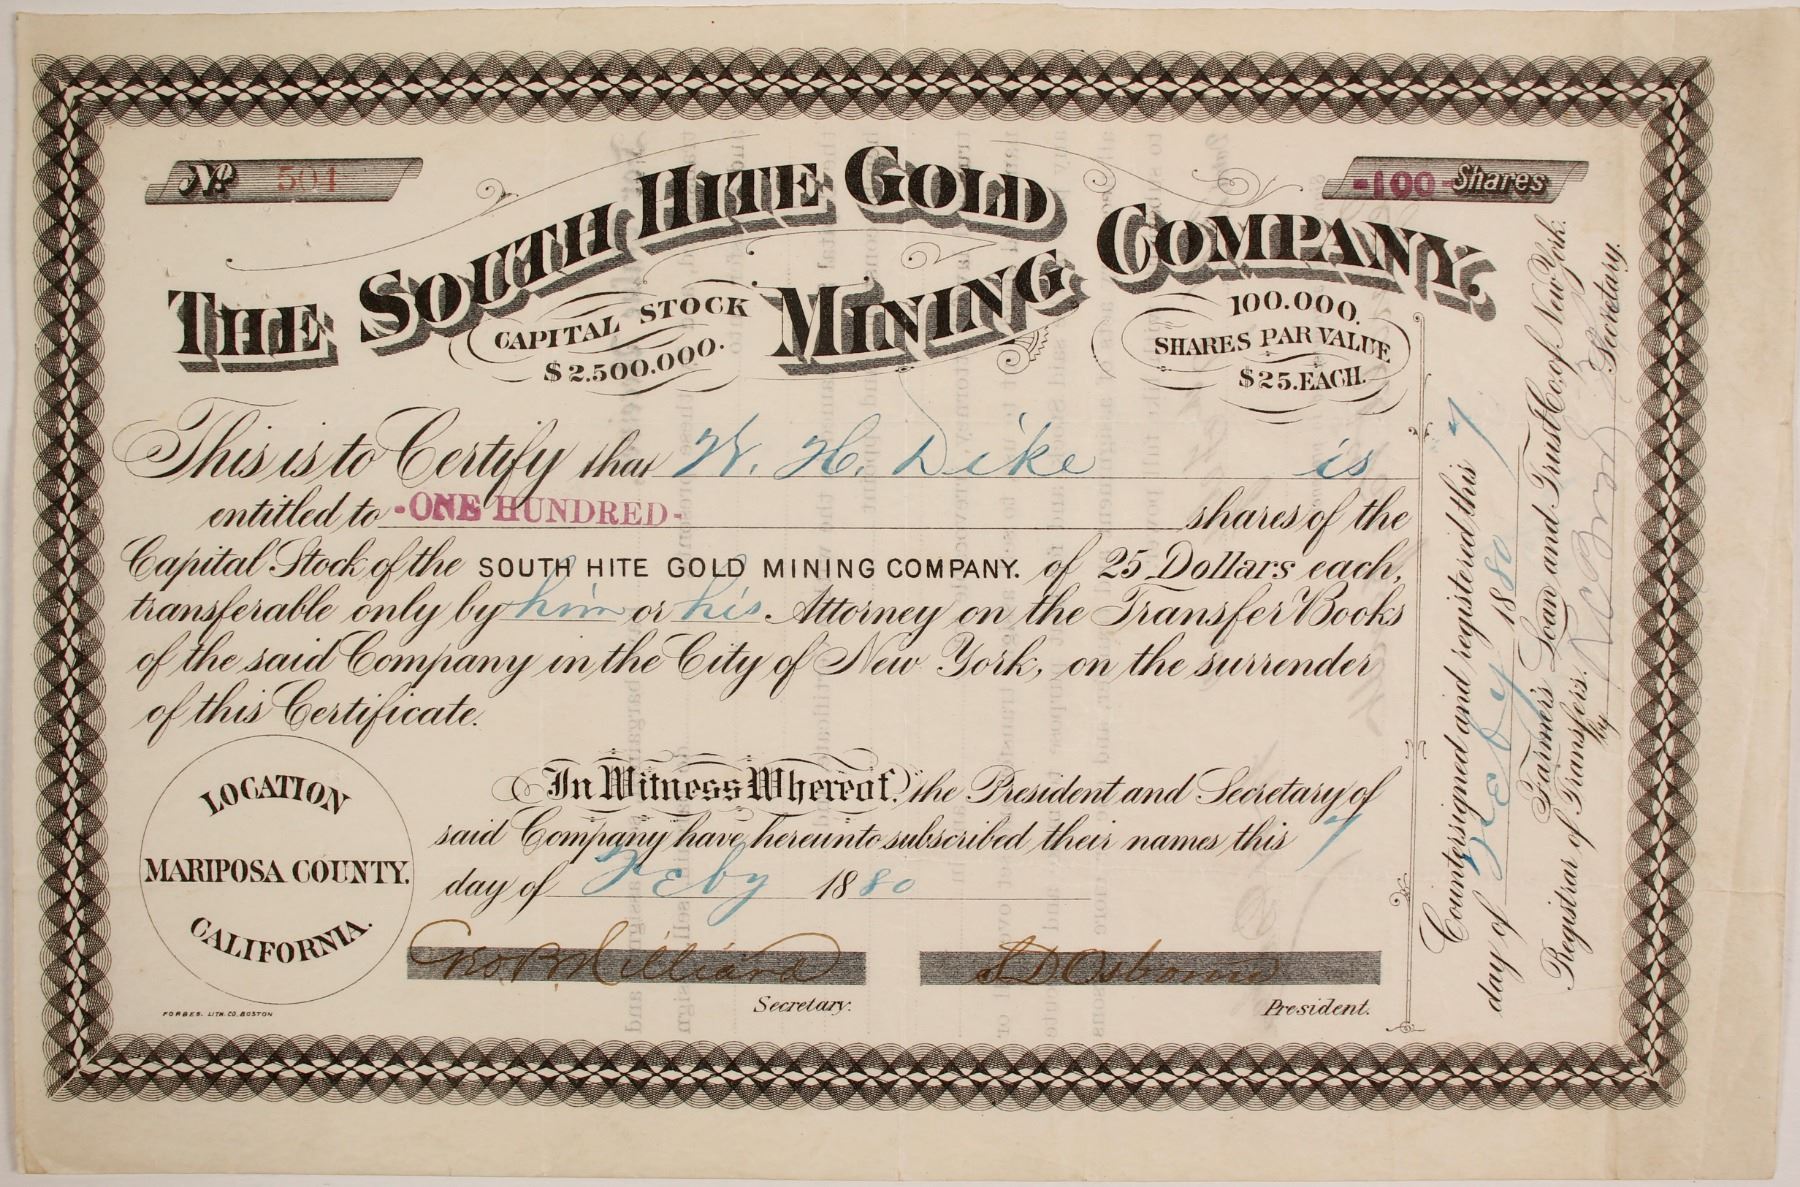 No. 504
-100- Shares
THE SOUTH HITE GOLD MINING COMPANY.
CAPITAL STOCK
$2.500.000.
100.000.
SHARES PAR VALUE
$25. EACH.
This is to Certify that W. H. Dike is
entitled to -ONE HUNDRED- shares of the
Capital Stock of the SOUTH HITE GOLD MINING COMPANY. of 25 Dollars each,
transferable only by him or his Attorney on the Transfer Books
of the said Company in the City of New York, on the surrender
of this Certificate.
LOCATION
MARIPOSA COUNTY.
CALIFORNIA.
In Witness Whereof, the President and Secretary of
said Company have hereunto subscribed their names this 7
day of Feby 1880
Geo B Hilliard
Secretary.
S D Osborne
President.
FORBES. LITH. CO. BOSTON
Countersigned and registered this 7
day of Feby 1880
Farmer's Loan and Trust Co. of New York.
Registrar of Transfers.
by Secretary.